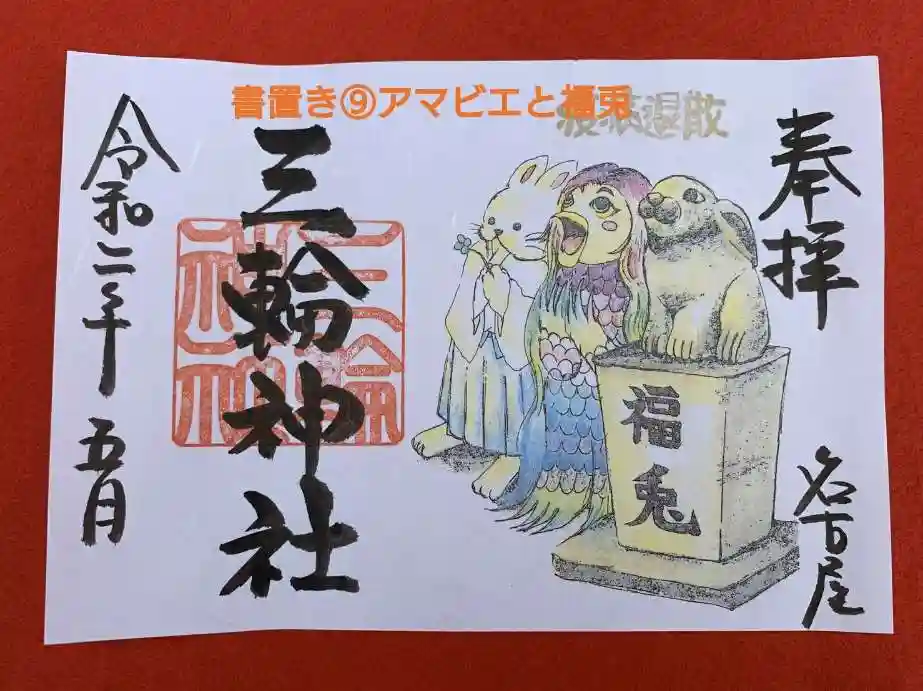 書置き⑨アマビエと福兎
疫病退散
奉拝
名古屋
福兎
三輪神社
三輪神社
令和二年 五月